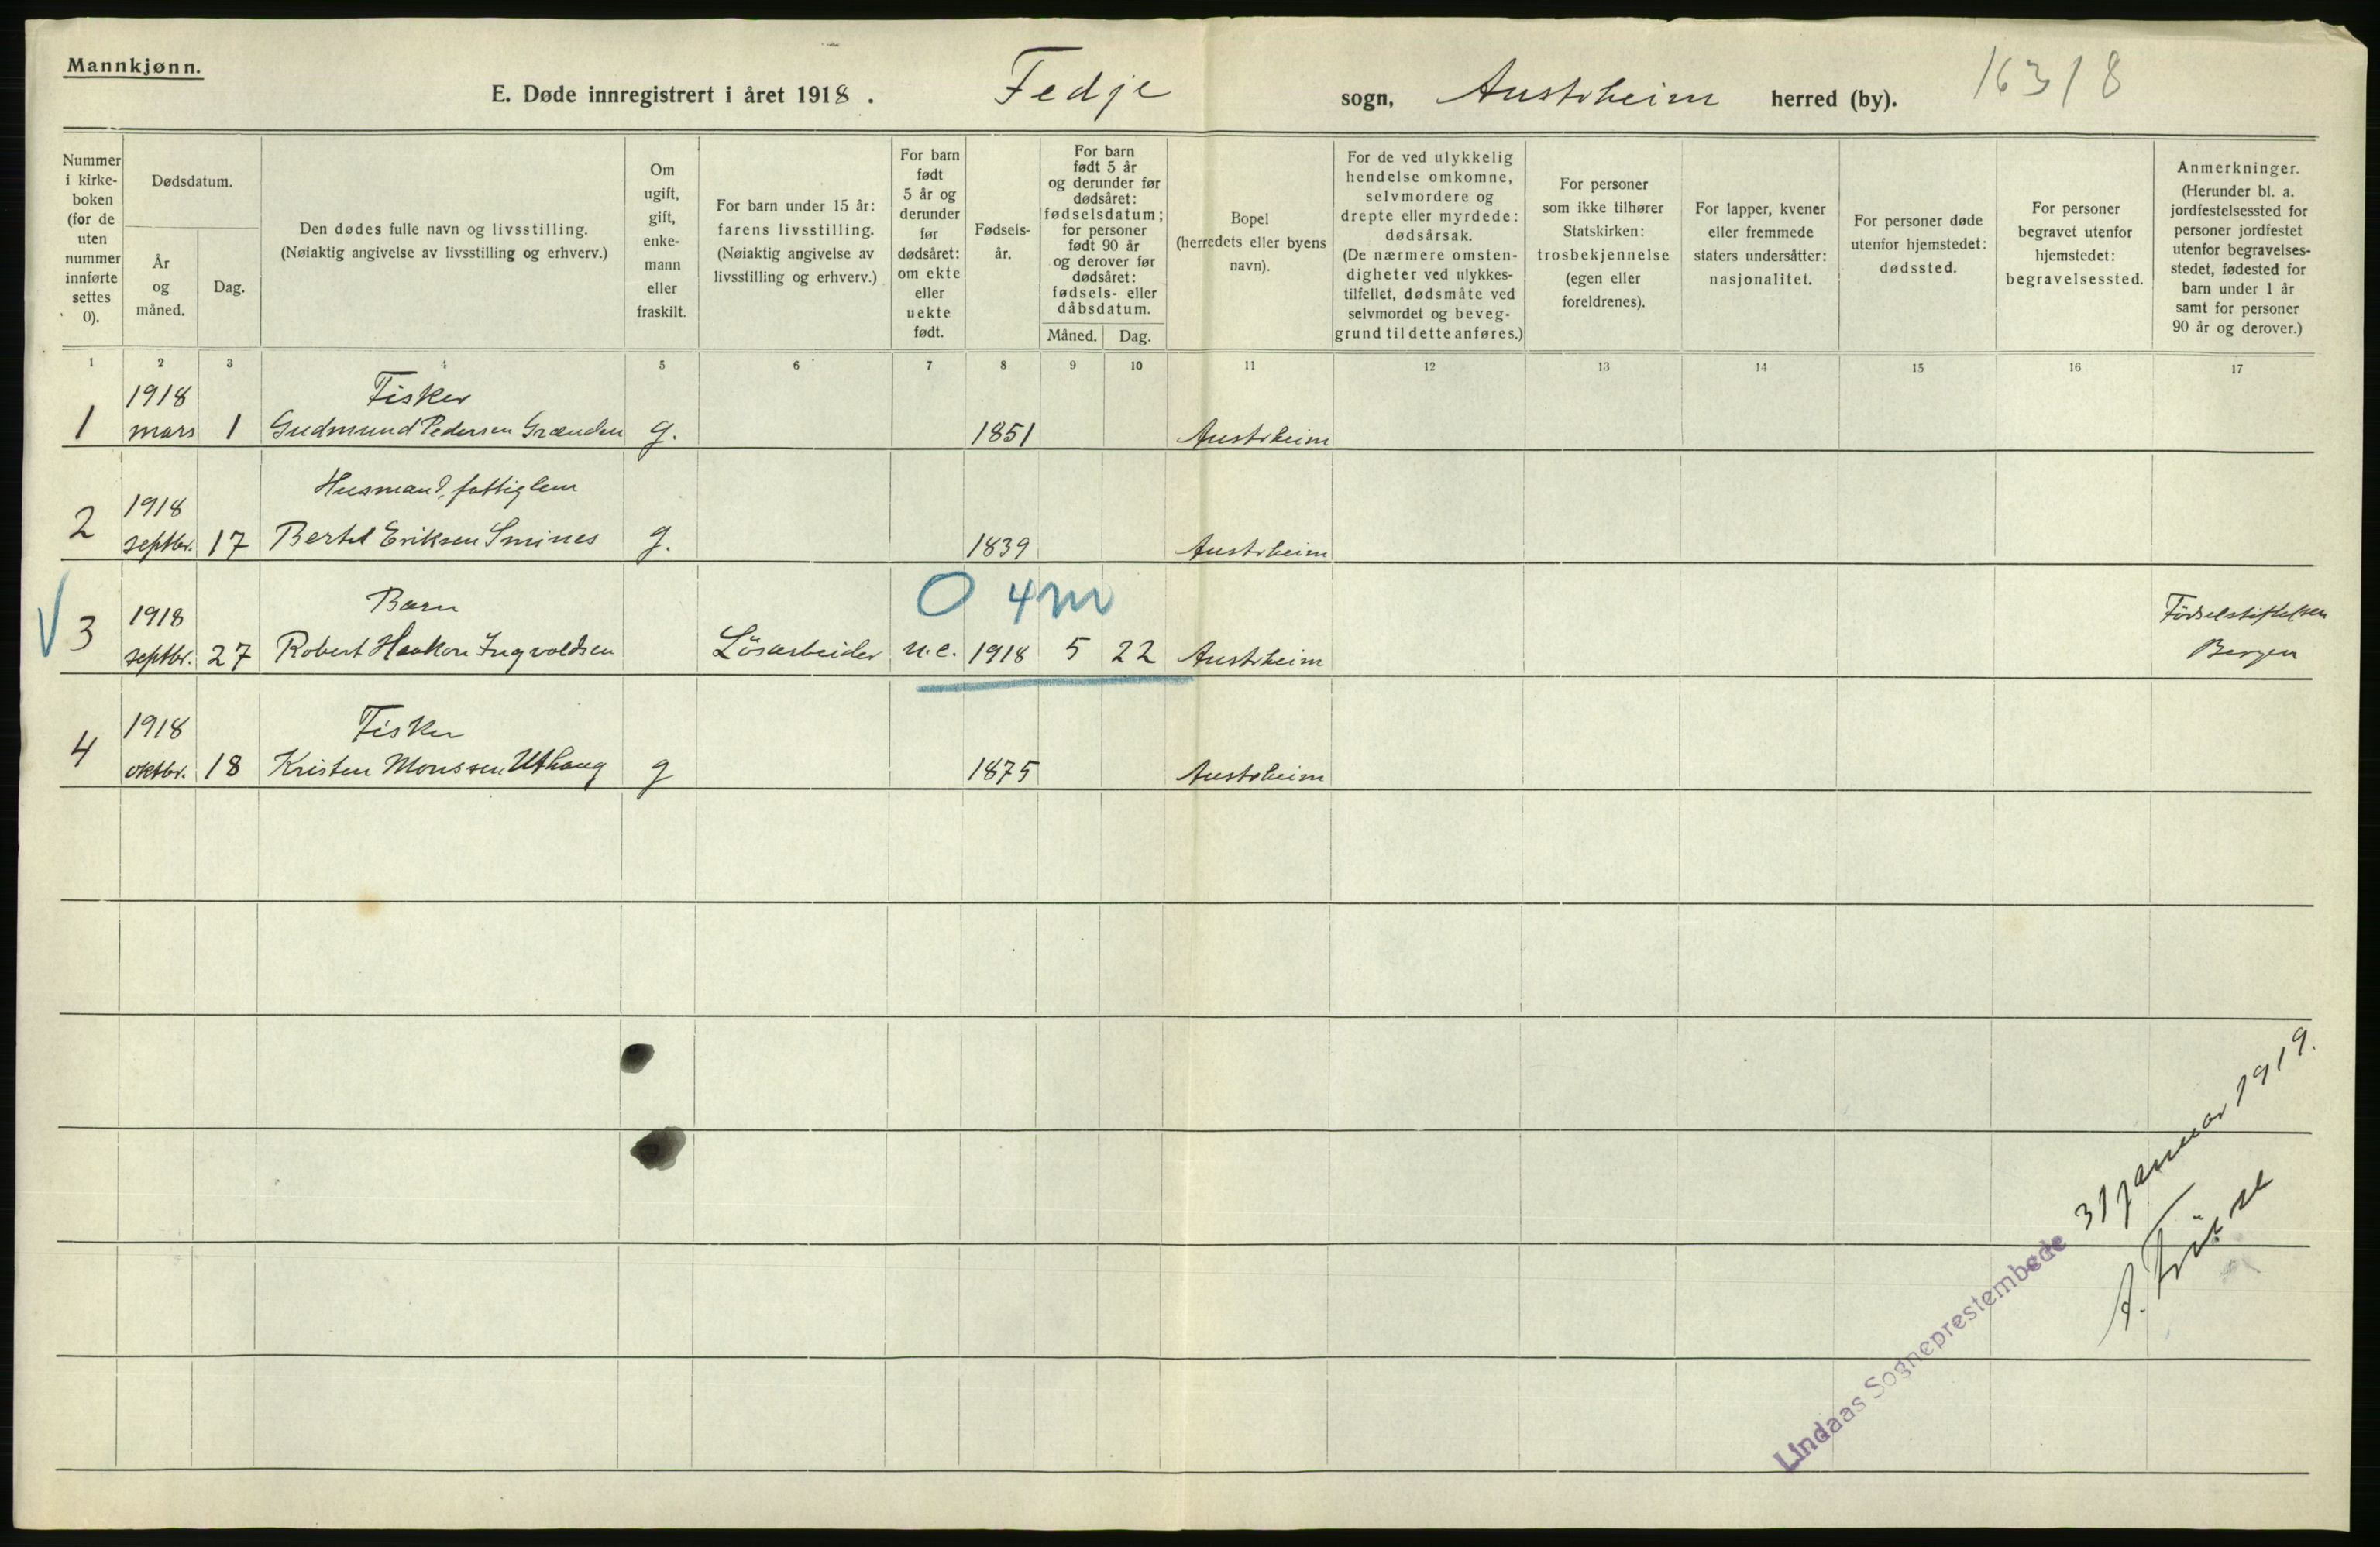 Mannkjønn.
E. Døde innregistrert i året 1918. Fedje sogn, Austrheim herred (by). 16318
Nummer i kirkeboken (for de uten nummer innførte settes 0).
Dødsdatum.
År og måned.
Dag.
Den dødes fulle navn og livsstilling.
(Nøiaktig angivelse av livsstilling og erhverv.)
Om ugift, gift, enkemann eller fraskilt.
For barn under 15 år: farens livsstilling.
(Nøiaktig angivelse av livsstilling og erhverv.)
For barn født 5 år og derunder før dødsåret: om ekte eller uekte født.
Fødselsår.
For barn født 5 år og derunder før dødsåret: fødselsdatum; for personer født 90 år og derover før dødsåret: fødsels- eller dåbsdatum.
Måned. Dag.
Bopel
(herredets eller byens navn).
For de ved ulykkelig hendelse omkomne, selvmordere og drepte eller myrdede: dødsårsak.
(De nærmere omstendigheter ved ulykkestilfellet, dødsmåte ved selvmordet og beveggrund til dette anføres.)
For personer som ikke tilhører Statskirken: trosbekjennelse (egen eller foreldrenes).
For lapper, kvener eller fremmede staters undersåtter: nasjonalitet.
For personer døde utenfor hjemstedet: dødssted.
For personer begravet utenfor hjemstedet: begravelsessted.
Anmerkninger.
(Herunder bl. a. jordfestelsessted for personer jordfestet utenfor begravelsesstedet, fødested for barn under 1 år samt for personer 90 år og derover.)
1 2 3 4 5 6 7 8 9 10 11 12 13 14 15 16 17
1918 Fisker
1 mars 1 Gudmund Pedersen Grænden g. 1851 Austrheim
1918 Husmand, fattiglem
2 septbr. 17 Bertel Eriksen Smines g. 1839 Austrheim
1918 Barn O 4 m Fødselstiftelsen
3 septbr. 27 Robert Haakon Ingvoldsen Lösarbeider u.e. 1918 5 22 Austrheim Bergen
1918 Fisker
4 oktbr. 18 Kristen Monssen Uthaug g 1875 Austrheim
Lindaas Sogneprestembede 31 januar 1919.